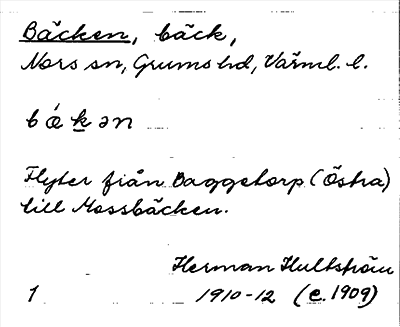 Bäcken, bäck,
Nors sn, Grums hd, Värml. l.
bǽkən
Flyter från Baggetorp (Östra)
till Mossbäcken.
Herman Hultström
1 1910-12 (e. 1909)